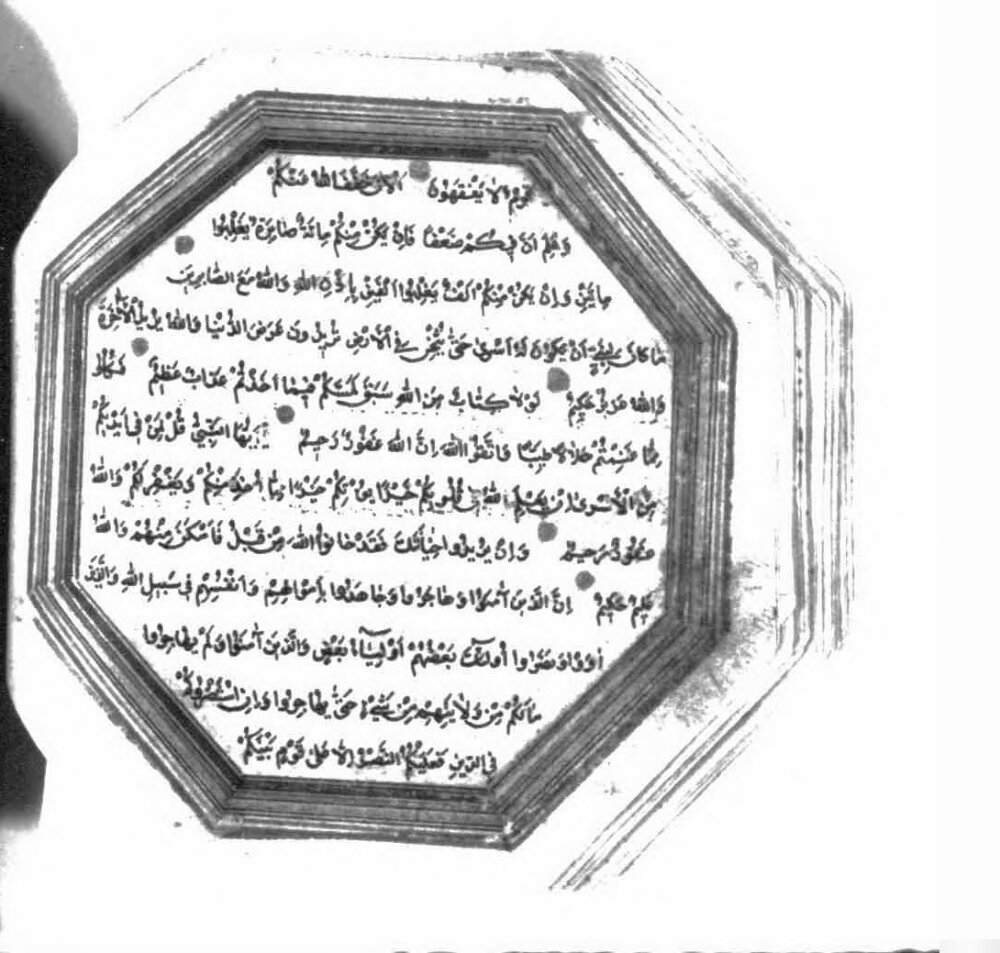 قوم لا يفقهون الآن خفف الله عنكم
وعلم أن فيكم ضعفا فإن يكن منكم مائة صابرة يغلبوا
مايتين وإن يكن منكم ألف يغلبوا ألفين بإذن الله والله مع الصابرين
ما كان لنبي أن يكون له أسرى حتى يثخن في الأرض تريدون عرض الدنيا والله يريد الآخرة
والله عزيز حكيم لولا كتاب من الله سبق لمسكم فيما أخذتم عذاب عظيم فكلوا
مما غنمتم حلالا طيبا واتقوا الله إن الله غفور رحيم يا أيها النبي قل لمن في أيديكم
من الأسرى إن يعلم الله في قلوبكم خيرا يؤتكم خيرا مما أخذ منكم ويغفر لكم والله
غفور رحيم وإن يريدوا خيانتك فقد خانوا الله من قبل فأمكن منهم والله
عليم حكيم إن الذين آمنوا وهاجروا وجاهدوا بأموالهم وأنفسهم في سبيل الله والذين
آووا ونصروا أولئك بعضهم أولياء بعض والذين آمنوا ولم يهاجروا
مالكم من ولايتهم من شيء حتى يهاجروا وإن استنصروكم
في الدين فعليكم النصر إلا على قوم بينكم